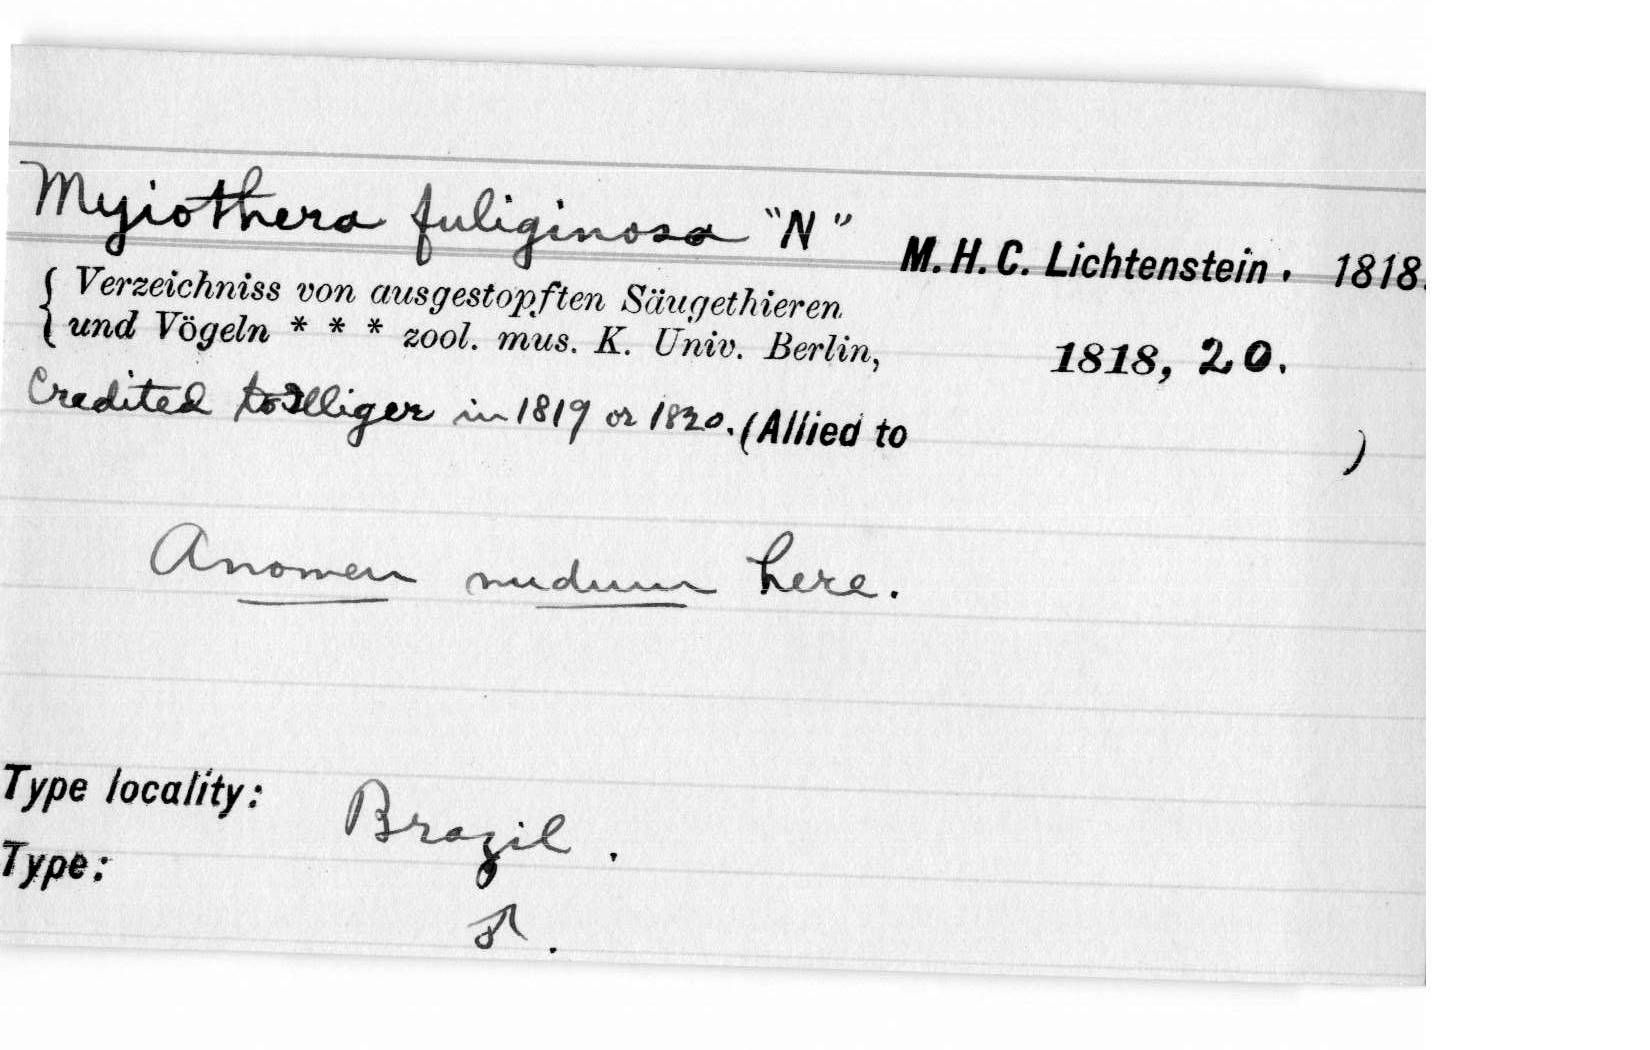 Myiothera fuliginosa "N" M. H. C. Lichtenstein. 1818.
{ Verzeichniss von ausgestopften Säugethieren
{ und Vögeln * * * zool. mus. K. Univ. Berlin, 1818, 20.
Credited to Illiger in 1819 or 1820. (Allied to )
A nomen nudum here.
Type locality: Brazil.
Type: ♂.